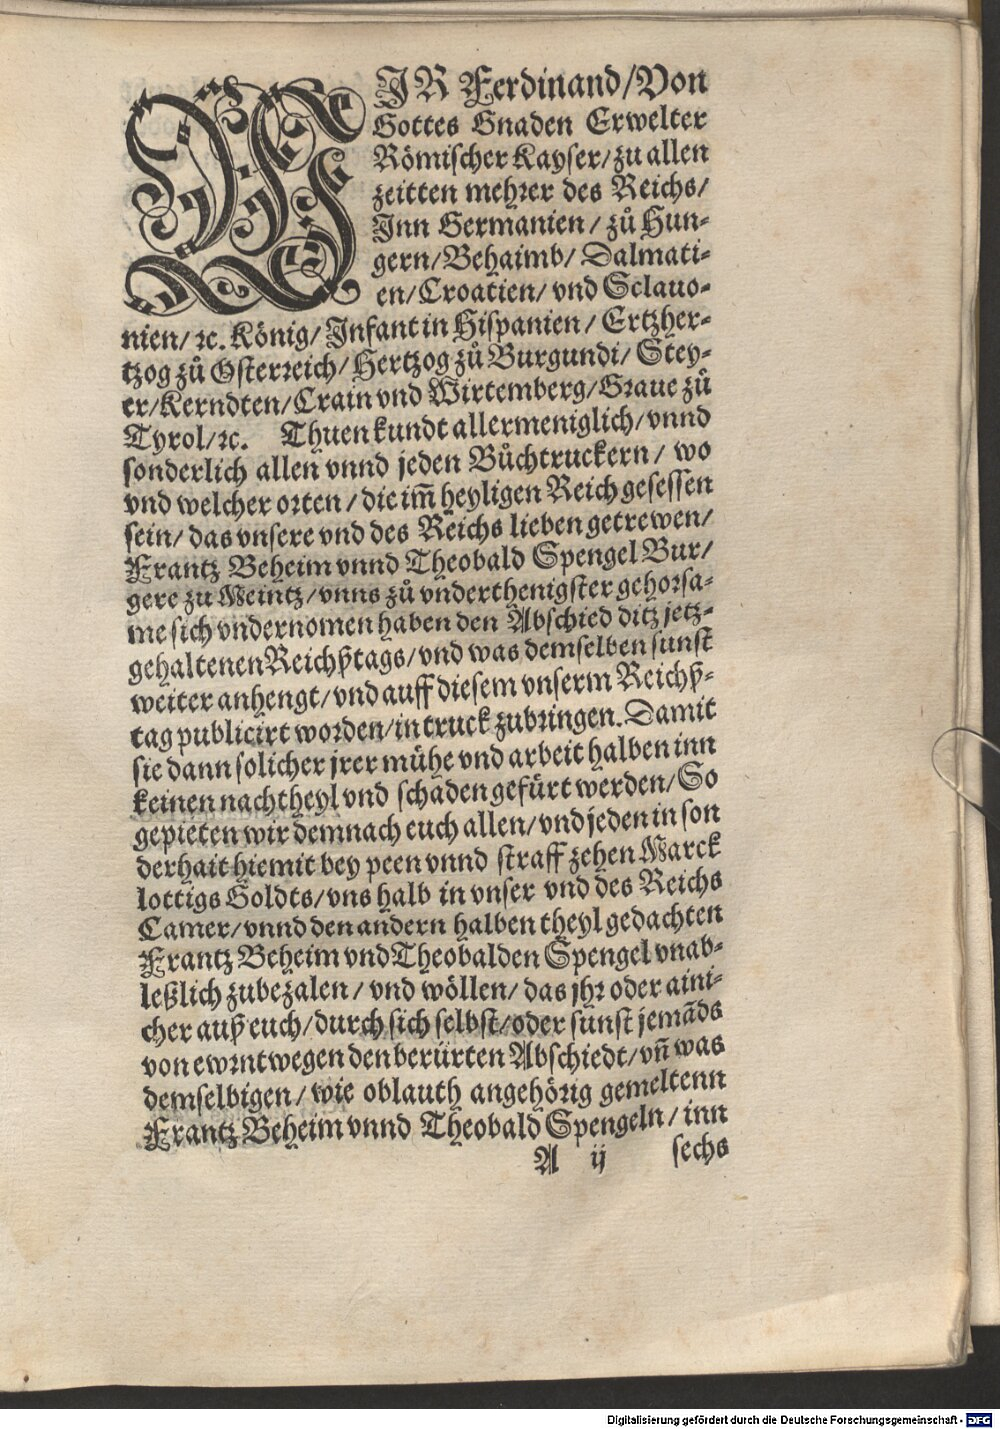 WIR Ferdinand/Von
Gottes Gnaden Erwelter
Römischer Kayser/zu allen
zeitten mehrer des Reichs/
Inn Germanien/zů Hun-
gern/Behaimb/Dalmati-
en/Croatien/vnd Sclauo-
nien/ꝛc. König/Infant in Hispanien/Ertzher-
tzog zů Osterreich/Hertzog zů Burgundi/Stey-
er/Kerndten/Crain vnd Wirtemberg/Graue zů
Tyrol/ꝛc. Thuen kundt allermeniglich/vnnd
sonderlich allen vnnd jeden Bůchtruckern/wo
vnd welcher orten/die im̃ heyligen Reich gesessen
sein/das vnsere vnd des Reichs lieben getrewen/
Frantz Beheim vnnd Theobald Spengel Bur/
gere zu Meintz/vnns zů vnderthenigster gehorsa-
me sich vndernomen haben den Abschied ditz jetz-
gehaltenen Reichßtags/vnd was demselben sunst
weiter anhengt/vnd auff diesem vnserm Reichß-
tag publicirt worden/in truck zubringen. Damit
sie dann solicher jrer mühe vnd arbeit halben inn
keinen nachtheyl vnd schaden gefürt werden/So
gepieten wir demnach euch allen/vnd jeden in son
derhait hiemit bey peen vnnd straff zehen Marck
lottigs Goldts/vns halb in vnser vnd des Reichs
Camer/vnnd den andern halben theyl gedachten
Frantz Beheim vnd Theobalden Spengel vnab-
leßlich zubezalen/vnd wöllen/das jhr oder aini-
cher auß euch/durch sich selbst/oder sunst jemãds
von ewrntwegen den berürten Abschiedt/vñ was
demselbigen/wie oblauth angehörig gemeltenn
Frantz Beheim vnnd Theobald Spengeln/inn
A ij sechs
Digitalisierung gefördert durch die Deutsche Forschungsgemeinschaft - DFG